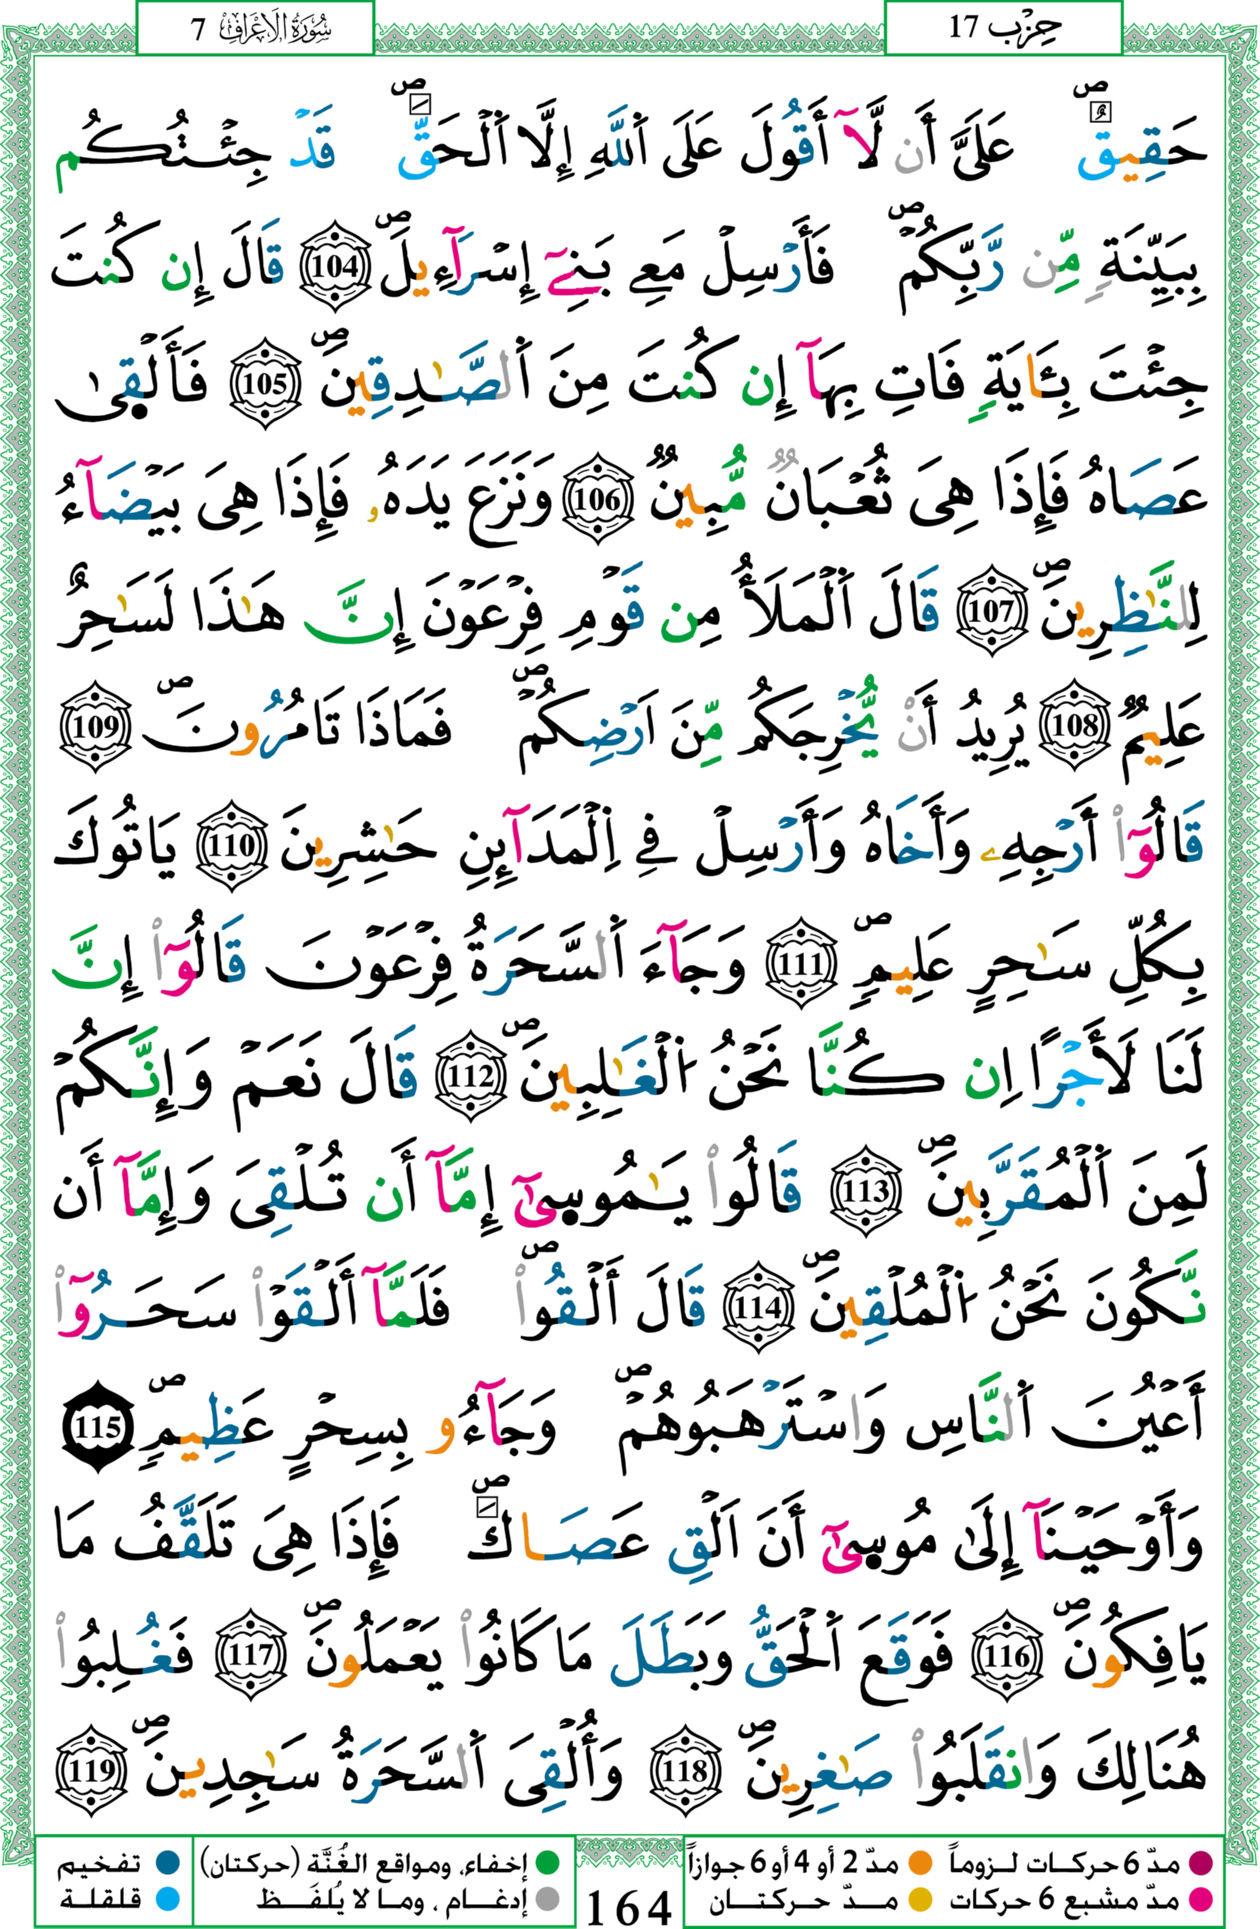 حِزْب 17
سُورَةُ الْأَعْرَافِ 7
حَقِيقٌ عَلَيَّ أَن لَّآ أَقُولَ عَلَى اَ۬للَّهِ إِلَّا اَ۬لْحَقَّۖ قَدْ جِئْتُكُم
بِبَيِّنَةٖ مِّن رَّبِّكُمْۖ فَأَرْسِلْ مَعِے بَنِےٓ إِسْرَآءِيلَۖ 104 قَالَ إِن كُنتَ
جِئْتَ بِـَٔايَةٖ فَاتِ بِهَآ إِن كُنتَ مِنَ اَ۬لصَّٰدِقِينَۖ 105 فَأَلْقٜىٰ
عَصَاهُ فَإِذَا هِيَ ثُعْبَانٞ مُّبِينٞ 106 وَنَزَعَ يَدَهُۥ فَإِذَا هِيَ بَيْضَآءُ
لِلنَّٰظِرِينَۖ 107 قَالَ اَ۬لْمَلَأُ مِن قَوْمِ فِرْعَوْنَ إِنَّ هَٰذَا لَسَٰحِرٌ
عَلِيمٞ 108 يُرِيدُ أَنْ يُّخْرِجَكُم مِّنَ اَرْضِكُمْۖ فَمَاذَا تَامُرُونَۖ 109
قَالُوٓاْ أَرْجِهِۦ وَأَخَاهُ وَأَرْسِلْ فِے اِ۬لْمَدَآئِنِ حَٰشِرِينَ 110 يَاتُوكَ
بِكُلِّ سَٰحِرٍ عَلِيمٖۖ 111 وَجَآءَ اَ۬لسَّحَرَةُ فِرْعَوْنَ قَالُوٓاْ إِنَّ
لَنَا لَأَجْرًا اِن كُنَّا نَحْنُ اُ۬لْغَٰلِبِينَۖ 112 قَالَ نَعَمْ وَإِنَّكُمْ
لَمِنَ اَ۬لْمُقَرَّبِينَۖ 113 قَالُواْ يَٰمُوسٜىٰٓ إِمَّآ أَن تُلْقِيَ وَإِمَّآ أَن
نَّكُونَ نَحْنُ اُ۬لْمُلْقِينَۖ 114 قَالَ أَلْقُواْۖ فَلَمَّآ أَلْقَوْاْ سَحَرُوٓاْ
أَعْيُنَ اَ۬لنَّاسِ وَاسْتَرْهَبُوهُمْۖ وَجَآءُو بِسِحْرٍ عَظِيمٖۖ 115
وَأَوْحَيْنَآ إِلَىٰ مُوسٜىٰٓ أَنَ اَلْقِ عَصَاكَۖ فَإِذَا هِيَ تَلَقَّفُ مَا
يَافِكُونَۖ 116 فَوَقَعَ اَ۬لْحَقُّ وَبَطَلَ مَا كَانُواْ يَعْمَلُونَۖ 117 فَغُلِبُواْ
هُنَالِكَ وَانقَلَبُواْ صَٰغِرِينَۖ 118 وَأُلْقِيَ اَ۬لسَّحَرَةُ سَٰجِدِينَۖ 119
مدّ 6 حركات لـزوماً مدّ 2 أو 4 أو 6 جوازاً إخفاء، ومواقع الغُنَّة (حركتان) تفخيم
مدّ مشبع 6 حركات مـدّ حـركتـان إدغـام ، ومـا لا يُلفَـظ قلقلة
164